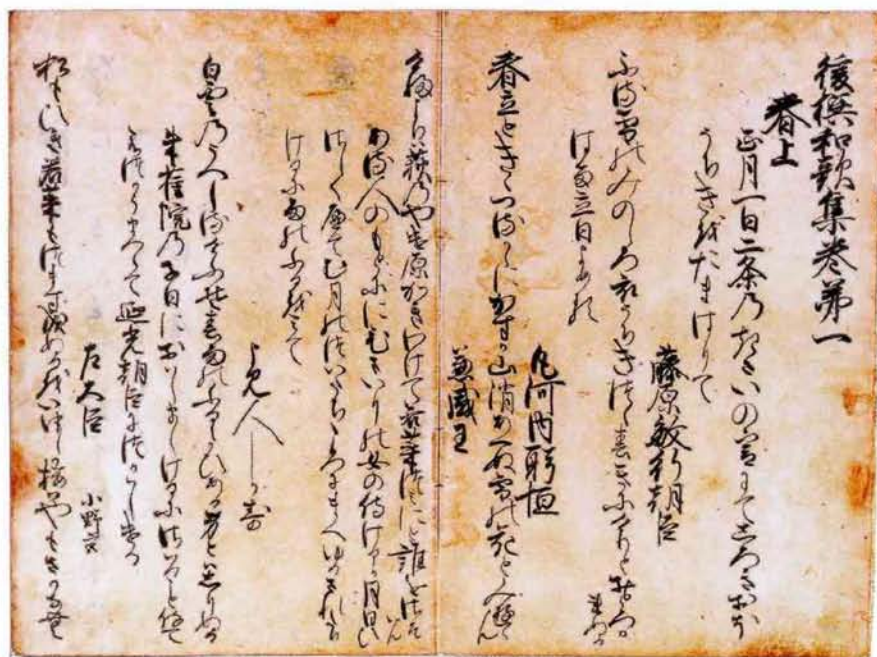 後撰和歌集巻第一
春上
正月一日二条乃きさいの宮にてしろきおほ
うちきをたまはりて
藤原敏行朝臣
ふる雪のみのしろ衣うちきつゝ春きにけりと
はる立日よめる
凡河内躬恒
春立ときゝつるからにかすか山消あへぬ雪の花とみゆらん
兼盛王
けふよりは荻のやけ原かきわけて若菜つみにと誰をさそはん
ある人のもとににひまいりの女の侍けるか月日ひ
さしくへてむ月のついたちころにまへゆるされた
りけるに雨のふるをみて
よみ人しらす
白雲のうへしるけふそ春雨のふるにかひある身としりぬる
朱雀院の子日におはしましけるにさはること侍て
えつかうまつらて延光朝臣につかはしける
左大臣 小野宮
松もひき若菜もつますなりぬるをいつしか桜はやもさかなむ